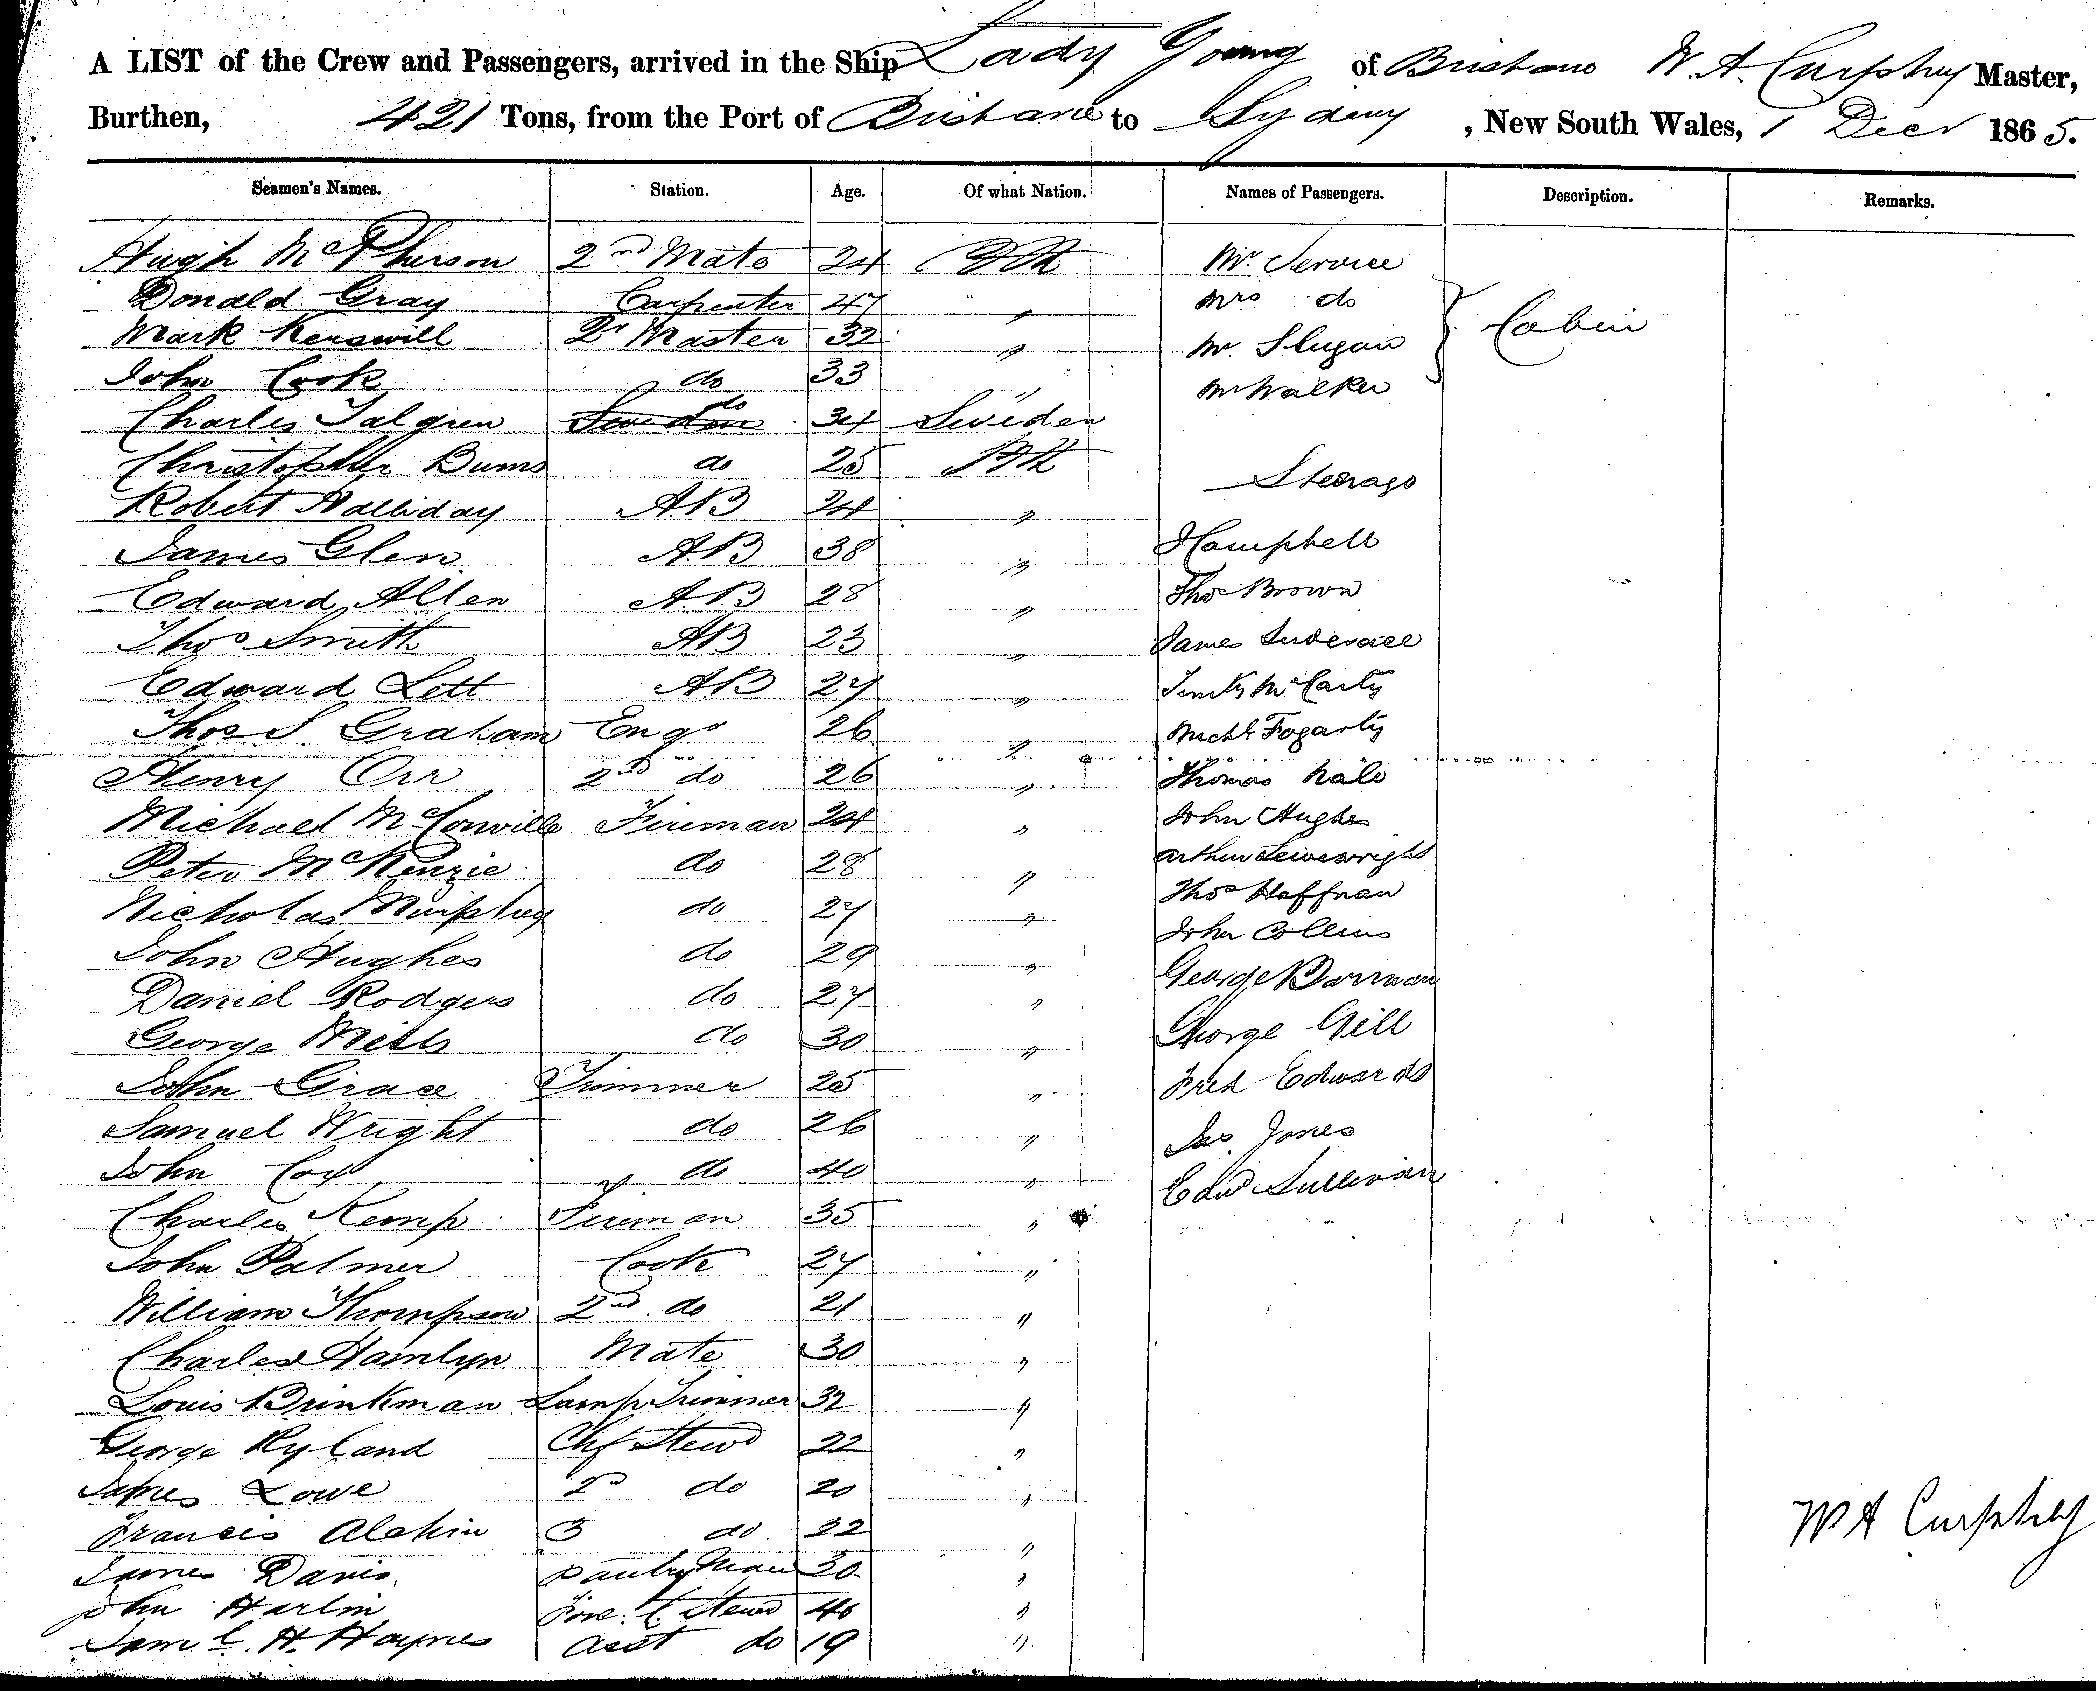 A LIST of the Crew and Passengers, arrived in the Ship Lady Young of Brisbane W. A. Curphey Master,
Burthen, 421 Tons, from the Port of Brisbane to Sydney, New South Wales, 1 Decr 1865.
Seamen's Names. Station. Age. Of what Nation. Names of Passengers. Description. Remarks.
Hugh McPherson 2nd Mate 24 Mr. Service
Donald Gray Carpenter 47 " Mrs do
Mark Kerswill Qr Master 32 " Mr. Slugan Cabin
John Cook do 33 " Mr Walker
Charles Talgren do 34 Sweden
Christopher Burns do 25
Steerage
Robert Halliday AB 24 "
James Glen AB 38 " Campbell
Edward Allen AB 28 " Thos Brown
Thos Smith AB 23 " James
Edward Lett AB 27 " Timty McCarty
Thos S. Graham Engr 26 " Michl Fogarty
Henry Orr 2nd do 26 " Thomas Hale
Michael McConville Fireman 24 " John Hughes
Peter McKenzie do 28 " Arthur
Nicholas Murphy do 27 " Thos Heffnan
John Collins
John Hughes do 29 "
Daniel Rodgers do 27 " George Dorman
George Mills do 30 " George Gill
John Grace Trimmer 25 " Fred Edwards
Samuel Wright do 26 " Jas. Jones
John Cox do 40 " Edwd Sullivan
Charles Kemp Fireman 35 "
John Palmer Cook 27 "
William Thompson 2nd do 21 "
Charles Hamlyn Mate 30 "
Louis Brinkman Lamp Trimmer 32 "
George Ryland Chf Stewd 22 "
James Lowe 2nd do 20 "
Francis Alchin 3 do 22 "
W A Curphey
James Davis Pantryman 30 "
John Harlin Fore C. Stewd 46 "
Saml. H. Haynes Asst do 19 "